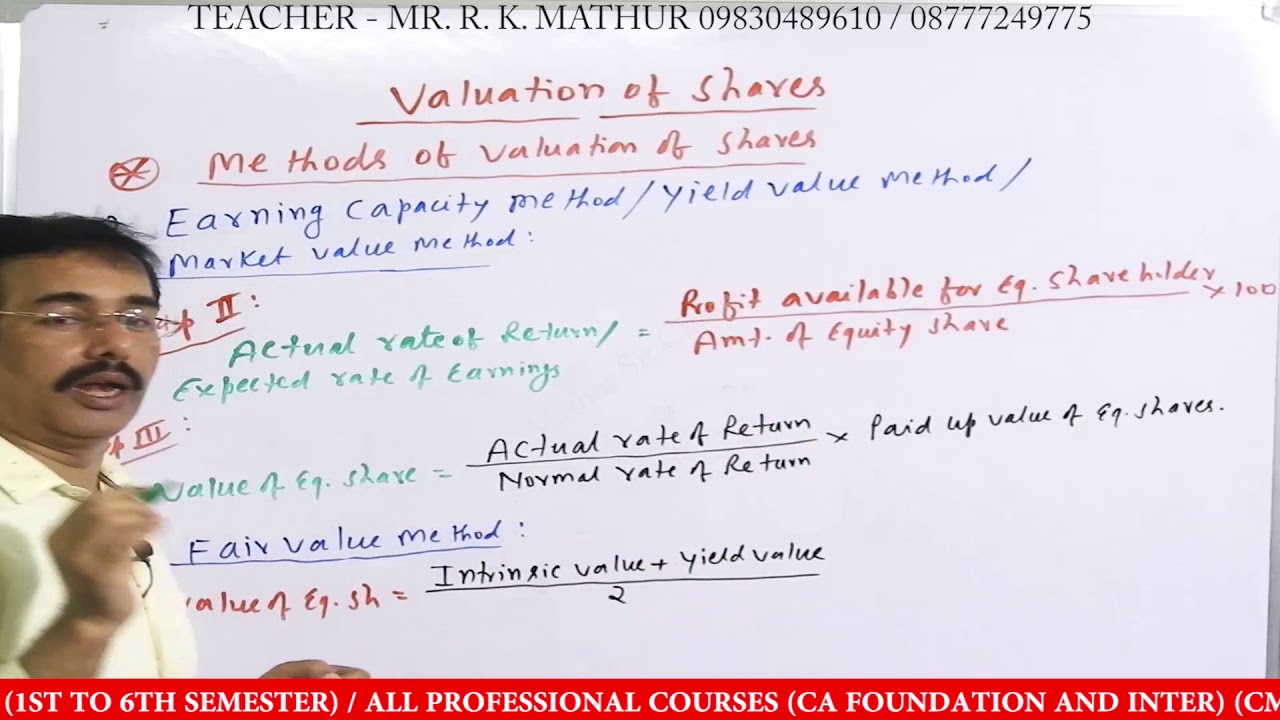 TEACHER - MR. R. K. MATHUR 09830489610 / 08777249775
Valuation of Shares
Methods of Valuation of Shares
Earning Capacity Method / Yield Value Method /
Market Value Method :
II :
Actual rate of Return / = Profit available for Eq. Shareholder × 100
Expected rate of Earnings Amt. of Equity Share
III :
Value of Eq. Share = Actual rate of Return × Paid up value of Eq. Shares.
Normal rate of Return
Fair Value Method :
Value of Eq. Sh = Intrinsic value + Yield value
2
(1ST TO 6TH SEMESTER) / ALL PROFESSIONAL COURSES (CA FOUNDATION AND INTER) (CM